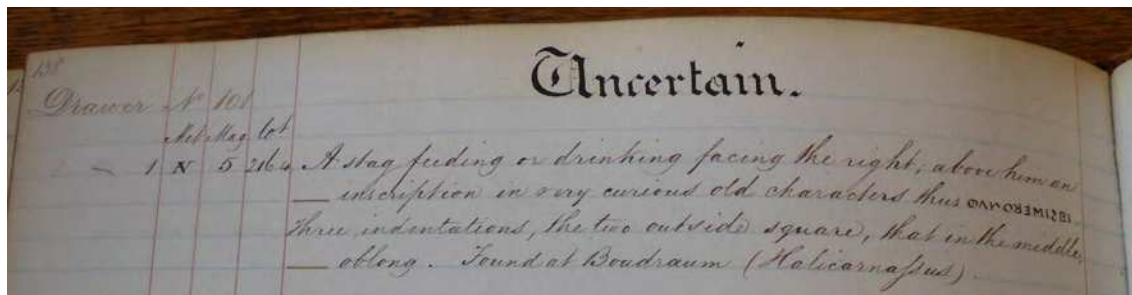 138
Uncertain.
Drawer No 101
Met Mag lot
1 N 5 2164 A stag feeding or drinking facing the right; above him an
inscription in very curious old characters thus
Three indentations, the two outside square, that in the middle,
oblong. Found at Boudraum (Halicarnaſsus)